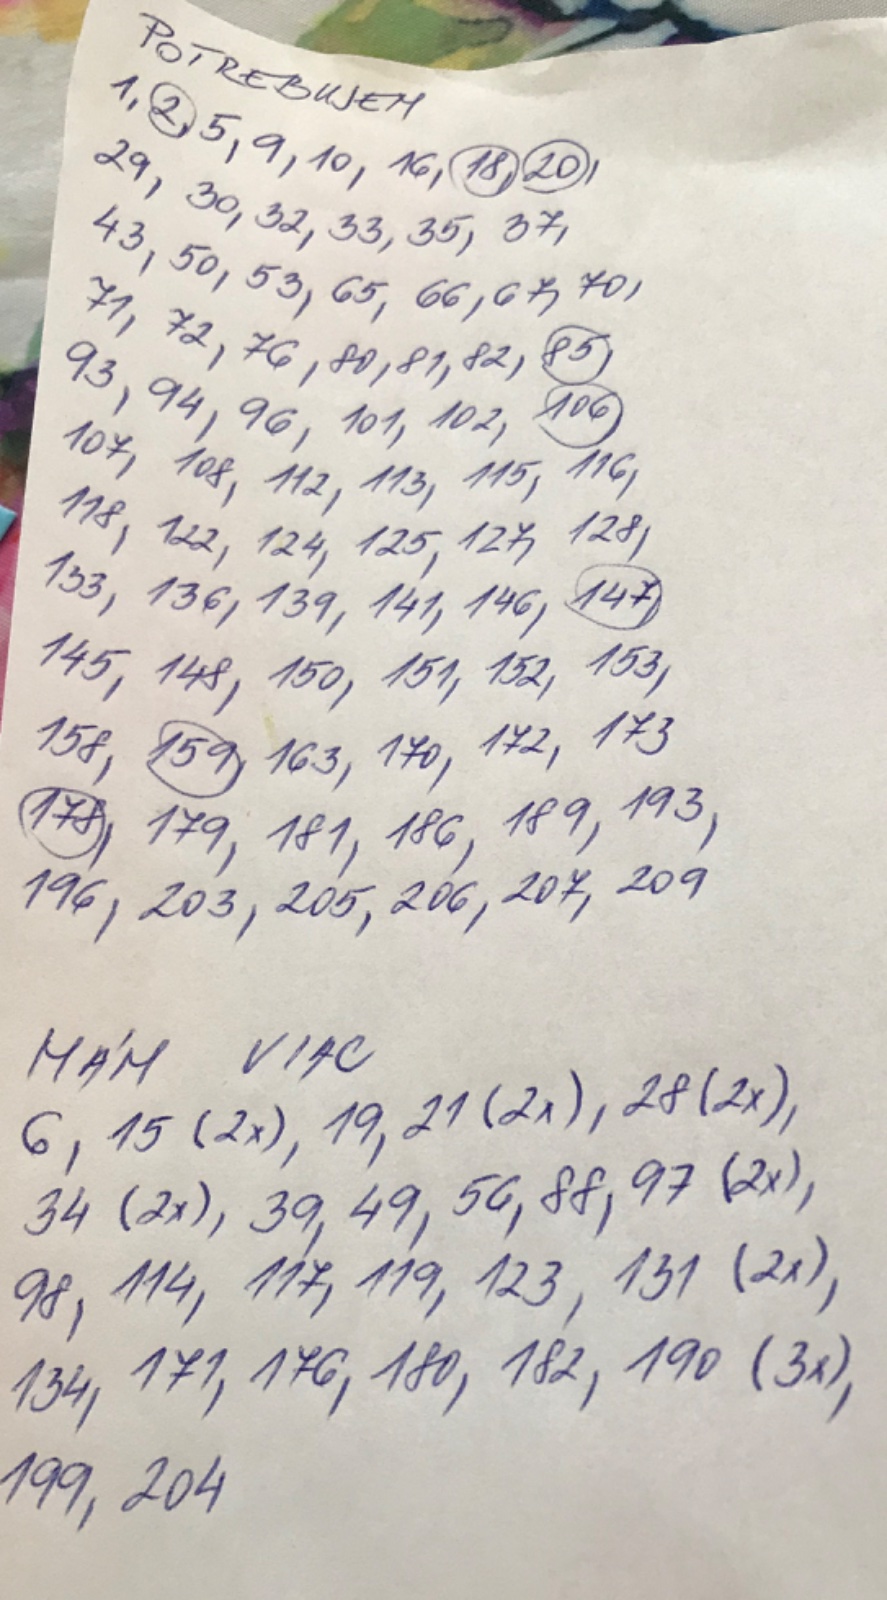 POTREBUJEM
1, 2, 5, 9, 10, 16, 18, 20,
29, 30, 32, 33, 35, 37,
43, 50, 53, 65, 66, 67, 70,
71, 72, 76, 80, 81, 82, 85,
93, 94, 96, 101, 102, 106
107, 108, 112, 113, 115, 116,
118, 122, 124, 125, 127, 128,
133, 136, 139, 141, 146, 147,
145, 148, 150, 151, 152, 153,
158, 159, 163, 170, 172, 173
178, 179, 181, 186, 189, 193,
196, 203, 205, 206, 207, 209
MÁM VIAC
6, 15 (2x), 19, 21 (2x), 28 (2x),
34 (2x), 39, 49, 56, 88, 97 (2x),
98, 114, 117, 119, 123, 131 (2x),
134, 171, 176, 180, 182, 190 (3x),
199, 204